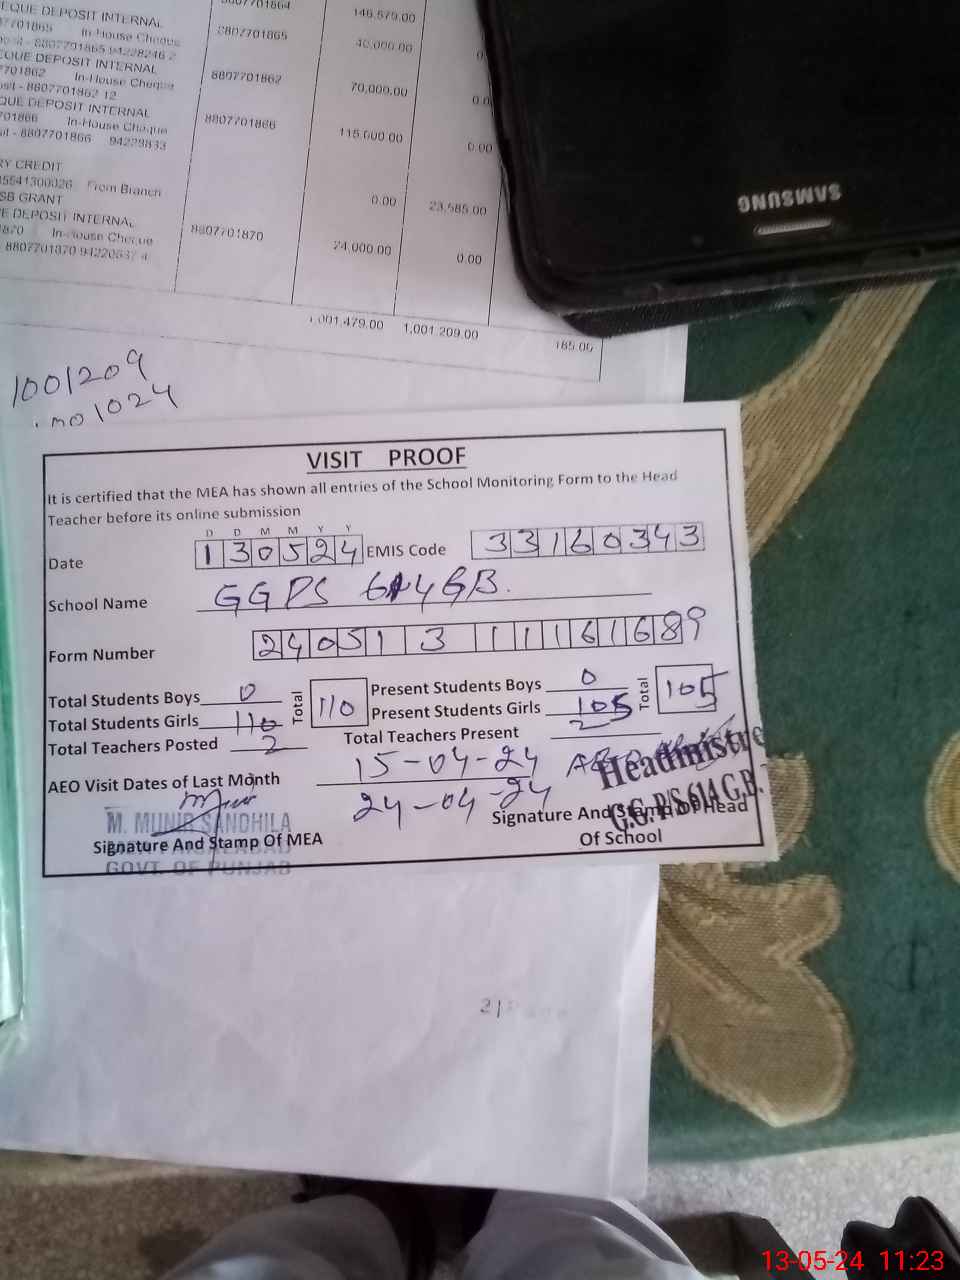 EQUE DEPOSIT INTERNAL
7701865 In-House Cheque 8807701865 40,000.00
8807701864 146,579.00
8807701865 94228246 2
EQUE DEPOSIT INTERNAL
7701862 In-House Cheque 8807701862 70,000.00 0.0
osit - 8807701862 12
QUE DEPOSIT INTERNAL
701866 In-House Cheque 8807701866 115,000.00 0.00
sit - 8807701866 94229833
RY CREDIT
5541300026 From Branch 0.00 23,585.00
SB GRANT
E DEPOSIT INTERNAL
1870 In-House Cheque 8807701870 24,000.00 0.00
8807701870
1,001,479.00 1,001,209.00 185.00
1001209
01024
SAMSUNG
VISIT PROOF
It is certified that the MEA has shown all entries of the School Monitoring Form to the Head
Teacher before its online submission
D D M M Y Y
Date 130524 EMIS Code 33160343
School Name GGPS 614GB.
Form Number 24051311161689
Total Students Boys 0 Total 110 Present Students Boys 0 Total 105
Total Students Girls 110 Present Students Girls 105
Total Teachers Posted 2 Total Teachers Present 2
AEO Visit Dates of Last Month 15-04-24
24-04-24
Headmistre
G.G.P/S.614 G.B.
M. MUNIR SANDHILA
Signature And Stamp Of MEA
GOVT. OF PUNJAB
Signature And Stamp Of Head
Of School
13-05-24 11:23